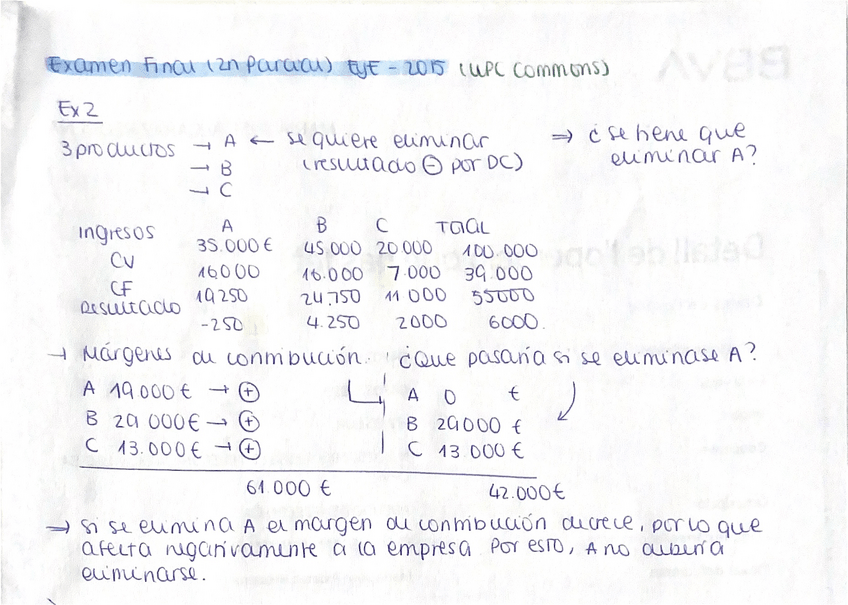 Examen Final (2n Parcial) EGE - 2015 (UPC Commons)
Ex 2
3 productos → A ← se quiere eliminar ⇒ ¿se tiene que
→ B (resultado ⊖ por DC) eliminar A?
→ C
A B C TOTAL
Ingresos 35.000 € 45.000 20 000 100.000
CV 16000 16.000 7.000 39.000
CF 19250 24.750 11 000 55000
Resultado -250 4.250 2000 6000.
→ Márgenes de contribución. ¿Que pasaría si se eliminase A?
A 19000 € → ⊕ A 0 €
B 29 000 € → ⊕ B 29000 €
C 13.000 € → ⊕ C 13.000 €
61.000 € 42.000 €
→ Si se elimina A el margen de contribución decrece, por lo que
afecta negativamente a la empresa Por esto, A no debería
eliminarse.
BBVA